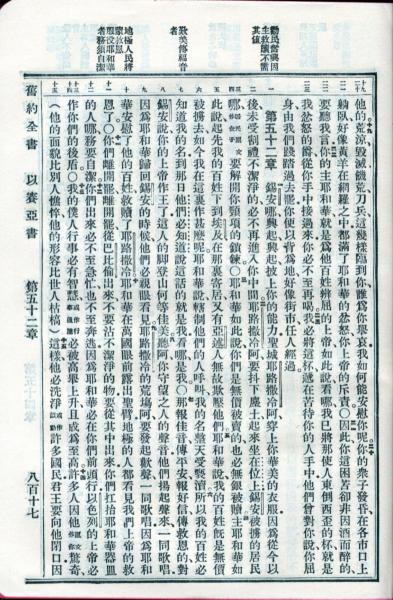 勸民奮興因
主救贖不需
其值
致美傳福音
者
地極人民將
蒙救恩
服役耶和華
者務須自潔
他的荒涼毀滅饑荒刀兵這幾樣臨到你誰為你舉哀我如何能安慰你呢你的眾子發昏在各市口上
躺臥好像黃羊在網羅之中都滿了耶和華的忿怒你上帝的斥責○因此你這困苦卻非因酒而醉的
要聽我言你的主耶和華就是為他百姓辨屈的上帝如此說看哪我已將那使人東倒西歪的杯就是
我忿怒的爵從你手中接過來你必不至再喝我必將這杯遞在苦待你的人手中他們曾對你說你屈
身由我們踐踏過去罷你便以背為地好像街市任人經過
第五十二章 錫安哪興起興起披上你的能力聖城耶路撒冷阿穿上你華美的衣服因為從今以
後未受割禮不潔淨的必不再進入你中間耶路撒冷阿要抖下塵土起來坐在位上錫安被擄的居民
哪要解開你頸項的鎖鍊○耶和華如此說你們是無價被賣的也必無銀被贖主耶和華如
此說起先我的百姓下到埃及在那裏寄居又有亞述人無故欺壓他們耶和華說我的百姓既是無價
被擄去如今我在這裏作甚麼呢耶和華說轄制他們的人呼叫我的名整天受褻瀆所以我的百姓必
知道我的名到那日他們必知道說這話的就是我看哪是我○那報佳音傳平安報好信傳救恩的對
錫安說你的上帝作王了這人的腳登山何等佳美聽阿你守望之人的聲音他們揚起聲來一同歌唱
因為耶和華歸回錫安的時候他們必親眼看見耶路撒冷的荒塲阿要發起歡聲一同歌唱因為耶和
華安慰了他的百姓救贖了耶路撒冷耶和華在萬國眼前露出聖臂地極的人都看見我們上帝的救
恩了○你們離開罷離開罷從巴比倫出來不要沾不潔淨的物要從其中出來你們扛抬耶和華器皿
的人哪務要自潔你們出來必不至急忙也不至奔逃因為耶和華必在你們前頭行以色列的上帝必
作你們的後盾○我的僕人行事必有智慧或作行事通達必被高舉上升且成為至高許多人因他原文作你驚奇
(他的面貌比別人憔悴他的形容比世人枯槁)這樣他必洗淨或作鼓動許多國民君王要向他閉口因
舊約全書 以賽亞書 第五十二章 八百十七